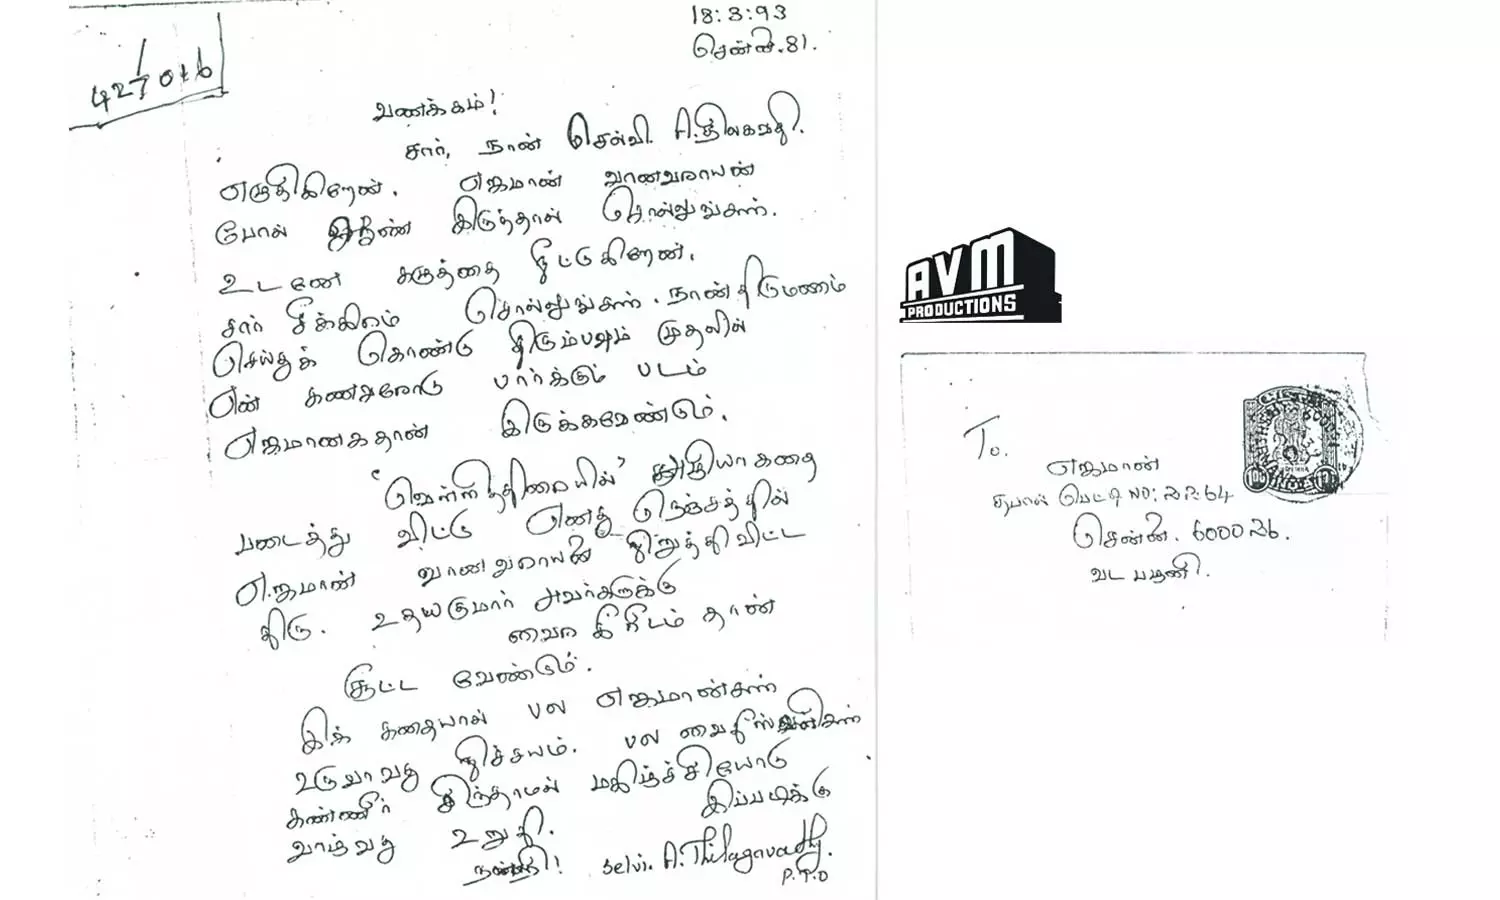 18:3:93
சென்னை.81.
427016
வணக்கம்!
சார், நான் செல்வி. A.திலகவதி.
எழுதிகிறேன். எஜமான் வானவராயன்
போல் ஆண் இருந்தால் சொல்லுங்கள்.
உடனே கழுத்தை நீட்டுகிறேன்.
சார் சீக்கிலம் சொல்லுங்கள். நான் திருமணம்
செய்துக் கொண்டு திரும்பவும் முதலில்
என் கணவரோடு பார்க்கும் படம்
எஜமானகதான் இருக்கவேண்டும்.
'வெள்ளித்திரையில்' அரியா கதை
படைத்து விட்டு எனது நெஞ்சத்தில்
எஜமான் வானவராயனை நிறுத்திவிட்ட
திரு. உதயகுமார் அவர்களுக்கு
வைர கிரீடம் தான்
சூட்ட வேண்டும்.
இக் கதையால் பல எஜமான்கள்
உருவாவது நிச்சயம். பல வைதீஸ்வரிகள்
கண்ணீர் சிந்தாமல் மகிழ்ச்சியோடு
வாழ்வது உறுதி. இப்படிக்கு
நன்றி! selvi. A.Thilagavathy.
P.T.O
AVM
PRODUCTIONS
To.
எஜமான்
தபால் பெட்டி NO: 2P:64
சென்னை. 600026.
வட பழனி.